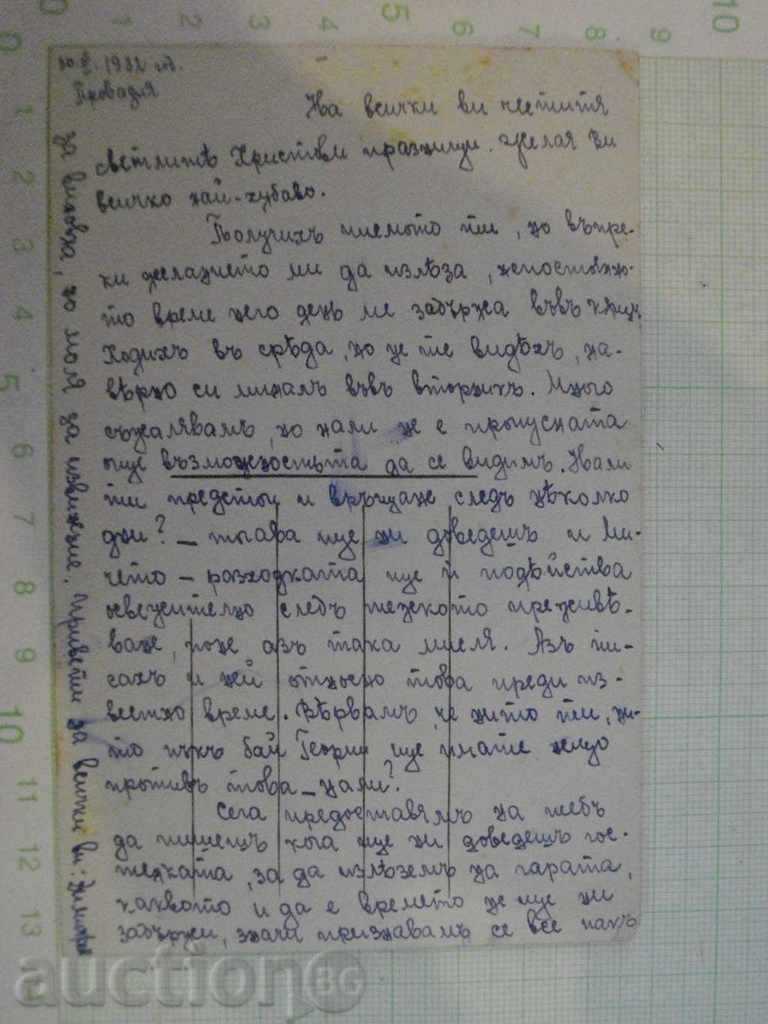 1932 год.
Провадия
На всички ви честитя
светлитѣ Христови празници. Желая ви
всичко най-хубаво.
Получихъ писмото ти, но въпре-
ки желанието ми да излѣза, непостоянно-
то време него день ме задържа във кѫщи.
Ходихъ въ срѣда, но не те видѣхъ, на-
вѣрно си миналъ във вторникъ. Много
съжалявамъ, но нали не е пропусната
още възможностьта да се видимъ. Нали
ти предстои и връщане следъ нѣколко
дни? – тогава ще ни доведешъ и Ми-
чето – разходката ще ѝ подѣйства
освежително следъ тежкото преживѣ-
ване, поне азъ така мисля. Азъ пи-
сахъ и ней относно това преди из-
вестно време. Вѣрвамъ, че нито ти, ни-
то пъкъ бай Георги ще имате нещо
противъ това – нали?
Сега предоставямъ на тебъ
да пишешъ кога ще ни доведешъ гос-
тенката, за да излѣземъ на гарата,
каквото и да е времето не ще ни
задържи, значи признавамъ се все пакъ
за виновна, но моля за извинение. Привети за всички ви:
auction BG
0 1 2 3 4 5 6 7 8 9 10
1 2 3 4 5 6 7 8 9 10 11 12 13